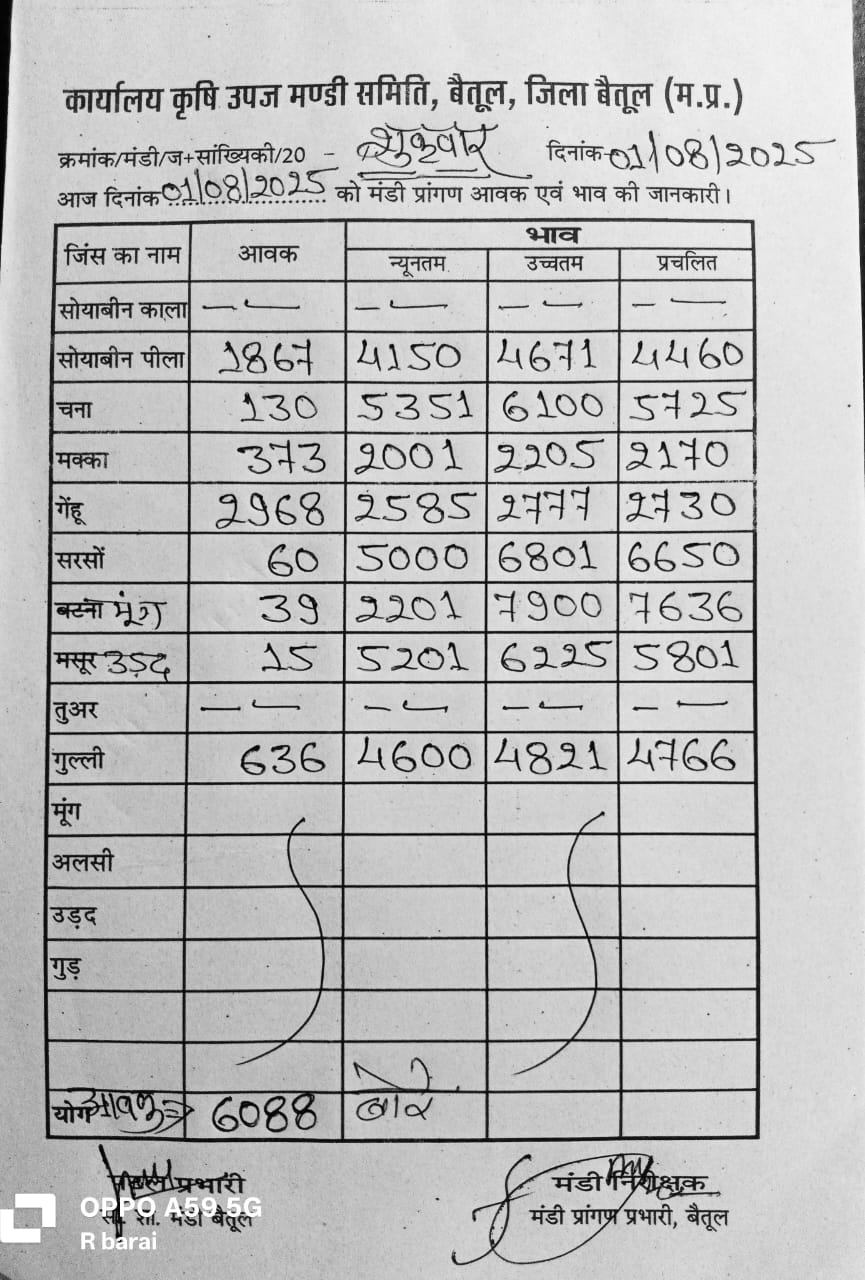 कार्यालय कृषि उपज मण्डी समिति, बैतूल, जिला बैतूल (म.प्र.)
क्रमांक/मंडी/ज+सांख्यिकी/20 - शुक्रवार दिनांक-01/08/2025
आज दिनांक 01/08/2025 को मंडी प्रांगण आवक एवं भाव की जानकारी।
जिंस का नाम आवक भाव
न्यूनतम उच्चतम प्रचलित
सोयाबीन काला -- -- -- --
सोयाबीन पीला 1867 4150 4671 4460
चना 130 5351 6100 5725
मक्का 373 2001 2205 2170
गेंहू 2968 2585 2777 2730
सरसों 60 5000 6801 6650
बटना मूंग 39 2201 7900 7636
मसूर उड़द 15 5201 6225 5801
तुअर -- -- -- --
गुल्ली 636 4600 4821 4766
मूंग
अलसी
उड़द
गुड़
योग आवक => 6088 बोरे
प्रभारी मंडी निरीक्षक
मंडी बैतूल मंडी प्रांगण प्रभारी, बैतूल
OPPO A59 5G
R barai